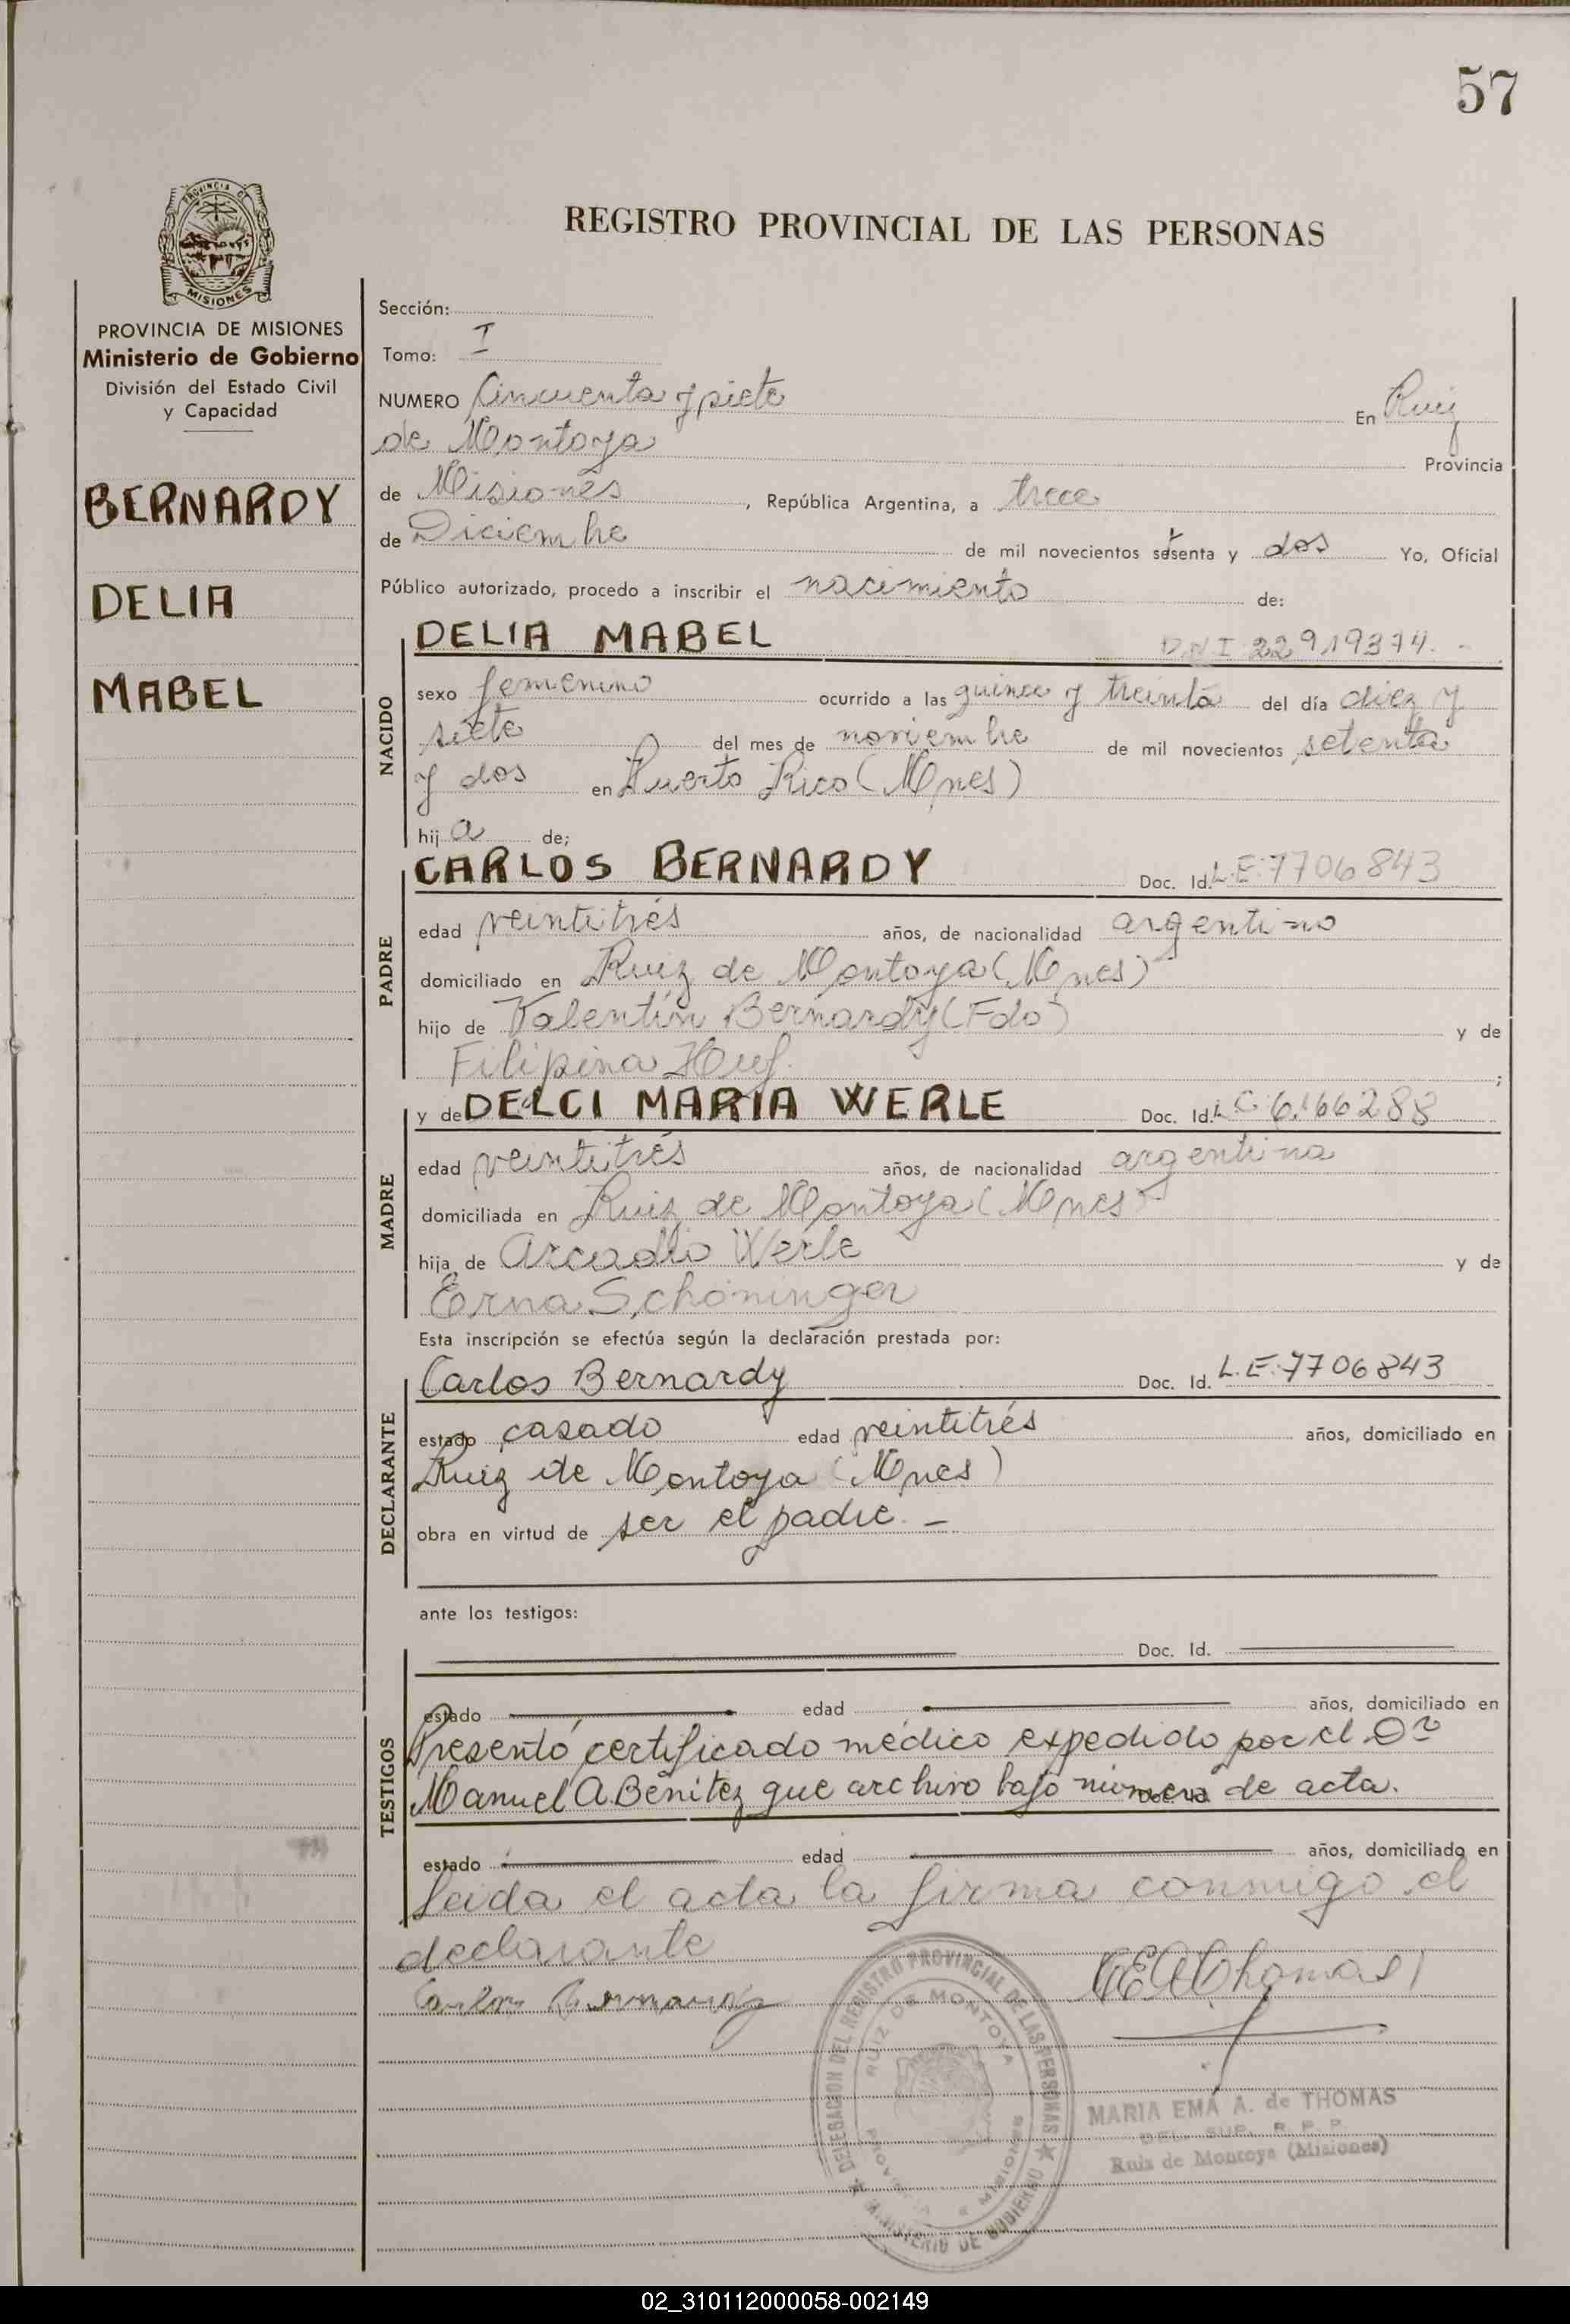 57
PROVINCIA DE
MISIONES
REGISTRO PROVINCIAL DE LAS PERSONAS
PROVINCIA DE MISIONES
Ministerio de Gobierno
División del Estado Civil
y Capacidad
BERNARDY
DELIA
MABEL
Sección:
Tomo: I
NUMERO Cincuenta y siete En Ruiz
de Montoya Provincia
de Misiones, República Argentina, a trece
de Diciembre de mil novecientos setenta y dos Yo, Oficial
Público autorizado, procedo a inscribir el nacimiento de:
NACIDO
DELIA MABEL D.N.I. 22919374.-
sexo femenino ocurrido a las quince y treinta del día diez y
siete del mes de noviembre de mil novecientos setenta
y dos en Puerto Rico (Mnes)
hija de;
PADRE
CARLOS BERNARDY Doc. Id. L.E. 7706843
edad veintitrés años, de nacionalidad argentino
domiciliado en Ruiz de Montoya (Mnes)
hijo de Valentín Bernardy (Fdo) y de
Filipina Huf. ;
MADRE
y de DELCI MARIA WERLE Doc. Id. L.C. 6.166288
edad veintitrés años, de nacionalidad argentina
domiciliada en Ruiz de Montoya (Mnes)
hija de Arcadio Werle y de
Erna Schöninger
Esta inscripción se efectúa según la declaración prestada por:
DECLARANTE
Carlos Bernardy Doc. Id. L.E. 7706843
estado casado edad veintitrés años, domiciliado en
Ruiz de Montoya (Mnes)
obra en virtud de ser el padre.-
ante los testigos:
TESTIGOS
Doc. Id.
estado edad años, domiciliado en
Presentó certificado médico expedido por el Dr
Manuel A. Benítez que archivo bajo número de acta.
estado edad años, domiciliado en
Leida el acta la firma conmigo el
declarante
Carlos Bernardy
DELEGACION DEL REGISTRO PROVINCIAL DE LAS PERSONAS
RUIZ DE MONTOYA
PROVINCIA DE MISIONES
MINISTERIO DE GOBIERNO
MARIA EMA A. de THOMAS
DEL. SUP. R. P. P.
Ruiz de Montoya (Misiones)
02_310112000058-002149